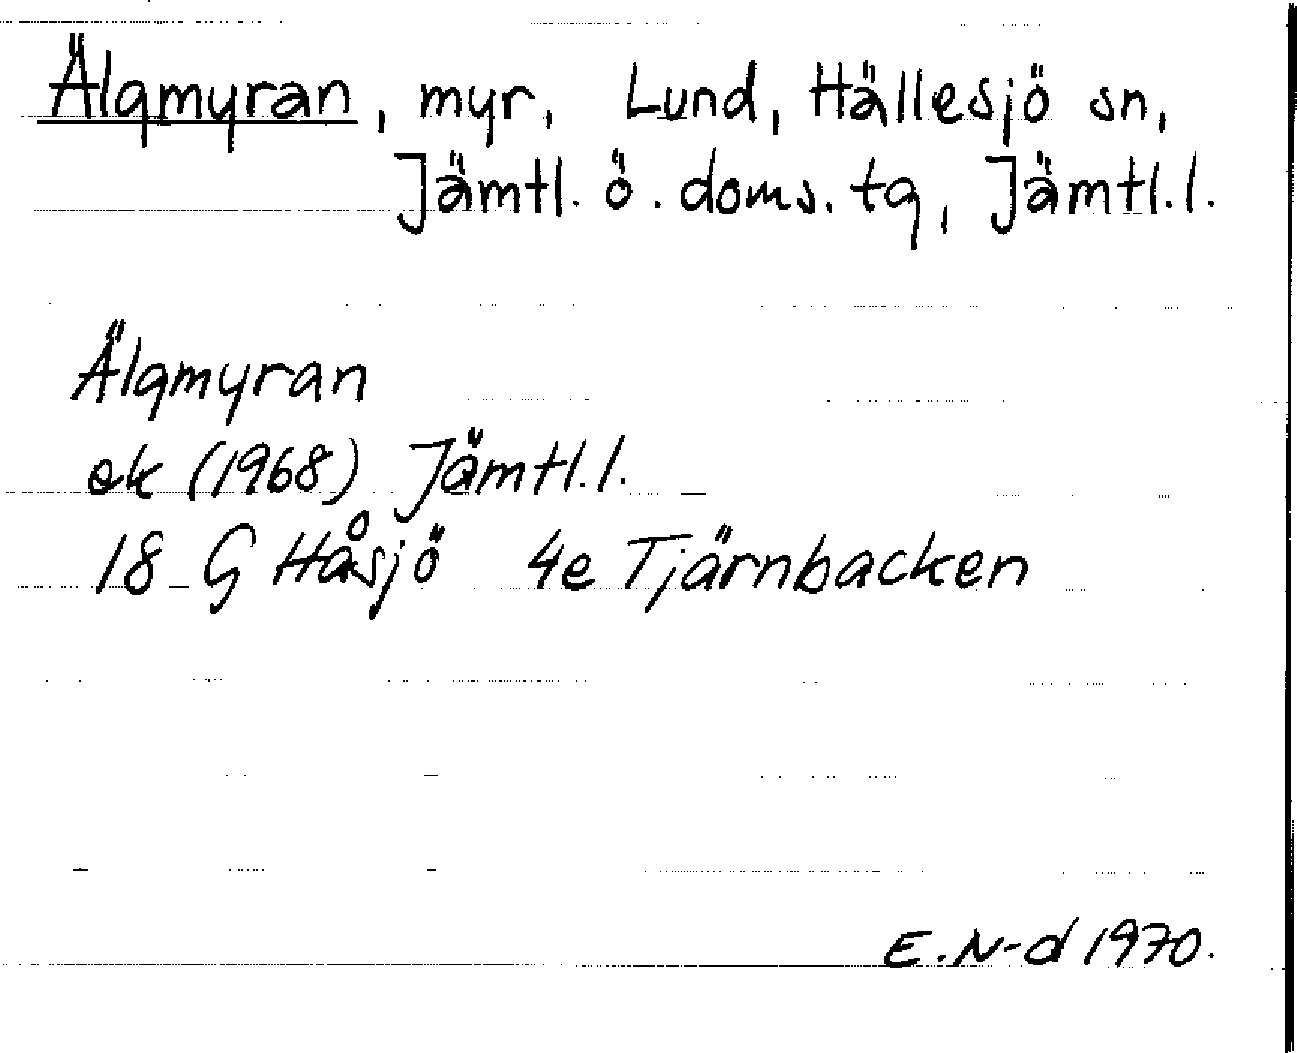 Älgmyran, myr, Lund, Hällesjö sn,
Jämtl. ö. doms. tg, Jämtl. l.
Älgmyran
ek (1968) Jämtl. l.
18 G Håsjö 4e Tjärnbacken
E. N-d 1970.